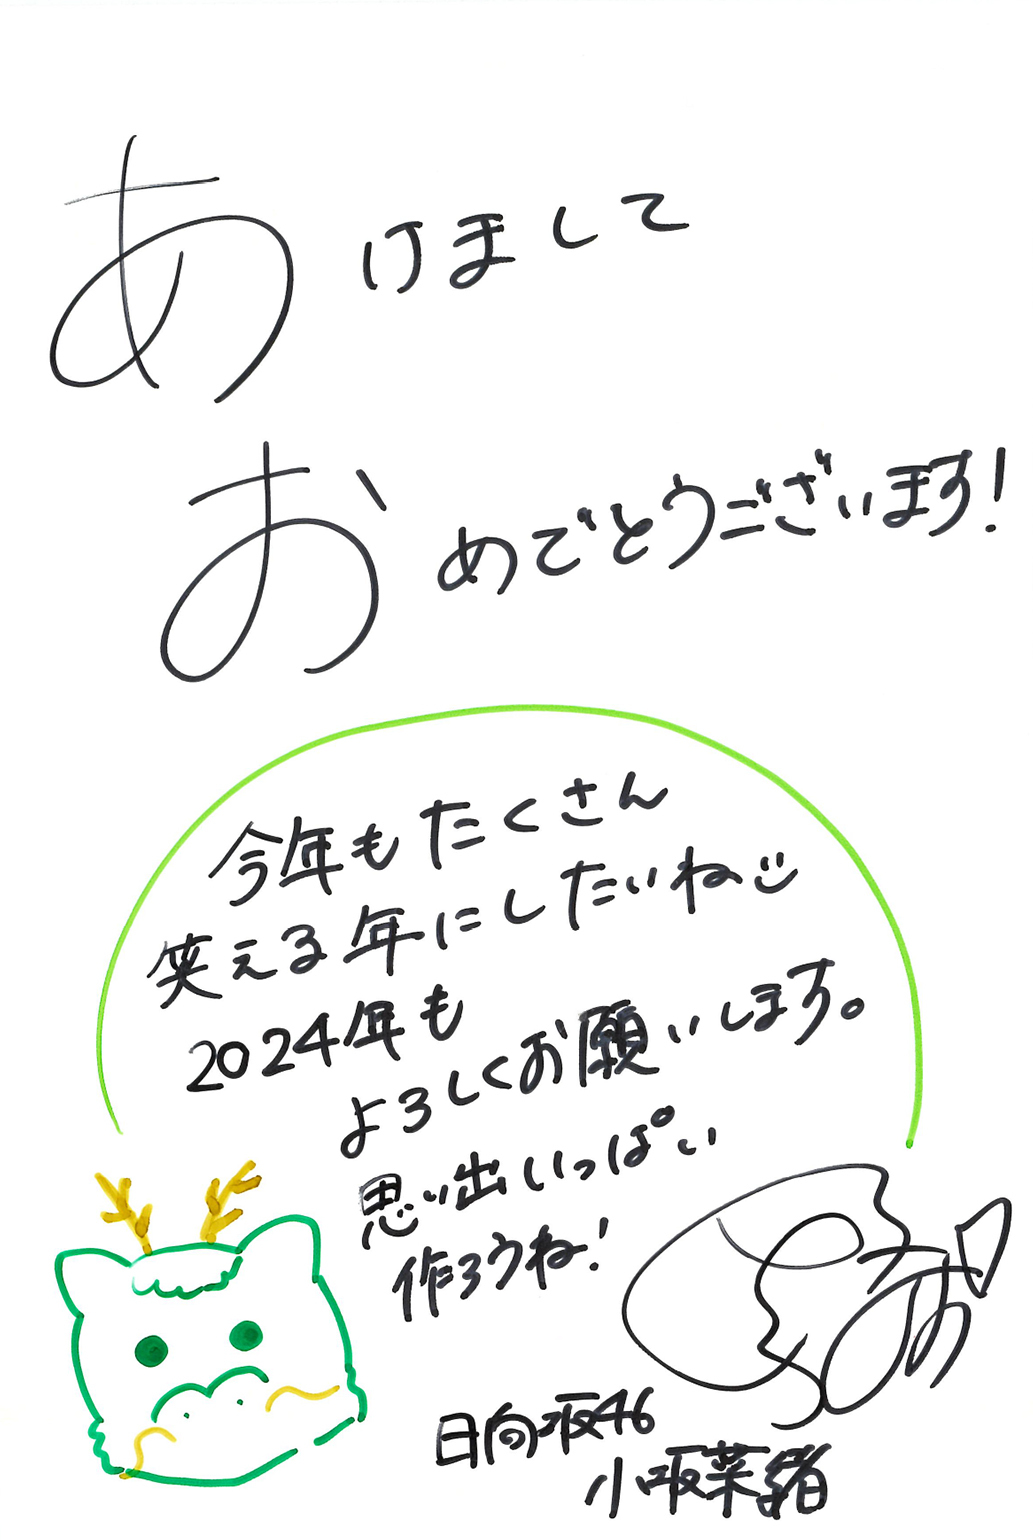 あけまして
おめでとうございます!
今年もたくさん
笑える年にしたいね
2024年も
よろしくお願いします。
思い出いっぱい
作ろうね!
日向坂46
小坂菜緒